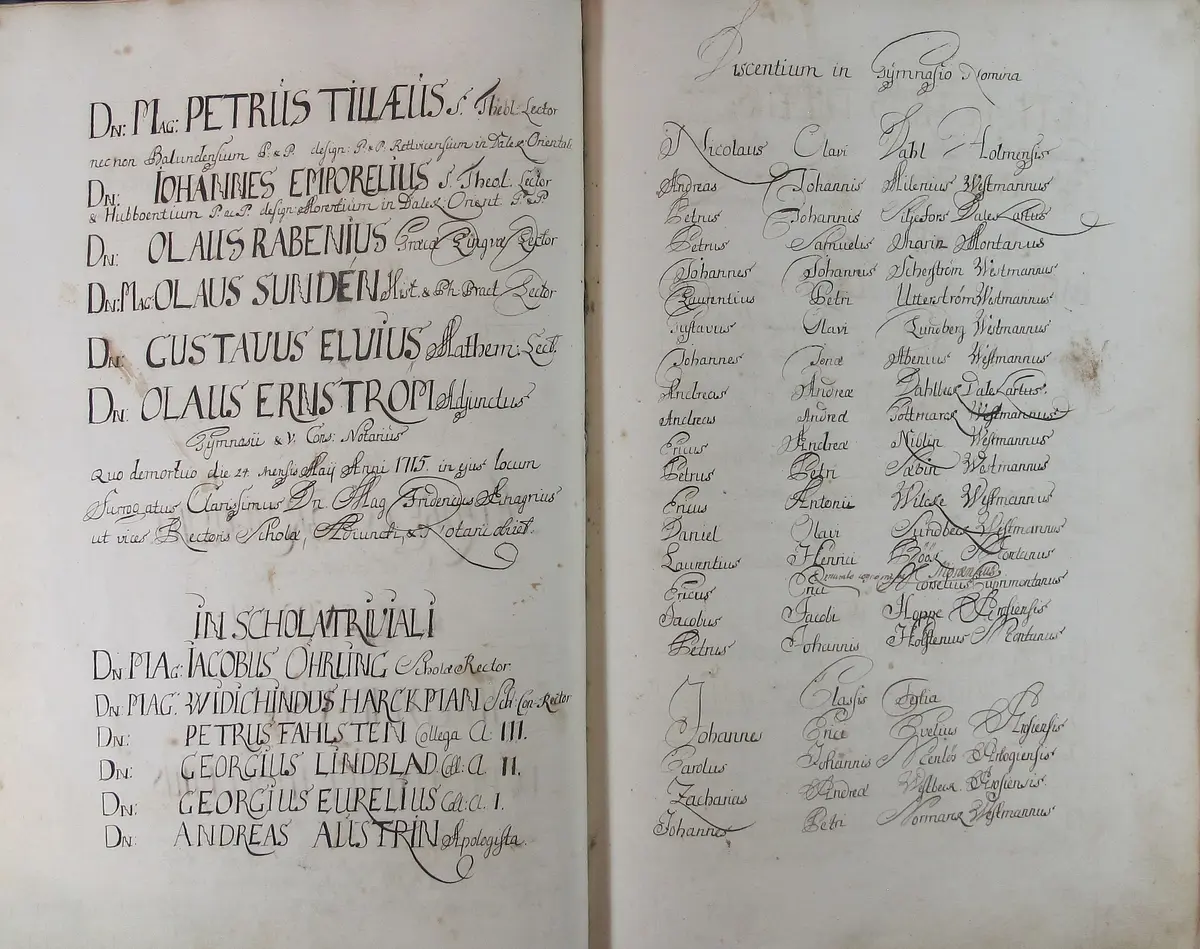 DN: MAG: PETRUS TILLÆUS S. Theol. Lector
nec non Balundensium P. & P. design: P. & P. Rettvicensium in Dalek: Oriental:
DN: IOHANNES EMPORELIUS S. Theol. Lector
& Hubboentium P. & P. design: Morentium in Dalek: Orient P. & P
DN: OLAUS RABENIUS Græcæ Lingvæ Lector
DN: MAG: OLAUS SUNDÉN Hist. & Ph: Pract Lector
DN: GUSTAVUS ELVIUS Mathem: Lect.
DN: OLAUS ERNSTROM Adjunctus
Gymnasii & V. Cons: Notarius
Quo demortuo die 24 Mensis Maij Anni 1715. in ejus locum
Surrogatus Clarissimus Dn. Mag Fridericus Enagrius
ut vices Rectoris Scholæ, Adiuncti, & Notarii obiret.
IN SCHOLA TRIVIALI
DN MAG: IACOBUS ÖHRLING Scholæ Rector
DN: MAG: WIDICHINDUS HARCKMAN Sch: Con-Rector
DN: PETRUS FAHLSTEN Collega Cl: III.
DN: GEORGIUS LINDBLAD Col: Cl II.
DN: GEORGIUS EURELIUS Col: Cl. I.
DN: ANDREAS AUSTRIN Apologista.
Discentium in Gymnasio Nomina
Nicolaus Olavi Dahl Holmensis
Andreas Johannis Milenius Westmannus
Petrus Johannis Siljefors Dalekarlus
Petrus Samuelis Marin Montanus
Johannes Johannis Scherström Westmannus
Laurentius Petri Utterström Westmannus
Gustavus Olavi Lundberg Westmannus
Johannes Jonæ Abenius Westmannus
Andreas Andreæ Dahlbek Dalekarlus.
Andreas Andreæ Gottmark Westmannus
Ericus Andreæ Niblin Westmannus
Petrus Petri Sæbin Westmannus
Ericus Antonii Wilcke Westmannus
Daniel Olavi Sundbeck Westmannus
Laurentius Henrici Höök Montanus
Ericus Erici Morselius Cuprimontanus
Jacobus Jacobi Hoppe Arosiensis
Petrus Johannis Holstenius Montanus
Classis
Johannes Erici Evelius Arosiensis
Carolus Johannis Arbogiensis
Zacharias Andreæ Westbeck Arosiensis.
Johannes Petri Norman Westmannus